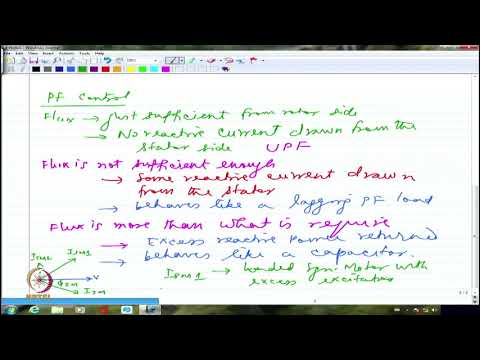 PF Control
Flux → Just sufficient from rotor side
→ No reactive current drawn from the
stator side UPF
Flux is not sufficient enough
→ Some reactive current drawn
from the stator
→ behaves like a lagging PF load
Flux is more than what is require
→ Excess reactive power returned
→ behaves like a capacitor.
ISM1 → loaded Syn. Motor with
excess excitation
ISM1
V
NPTEL